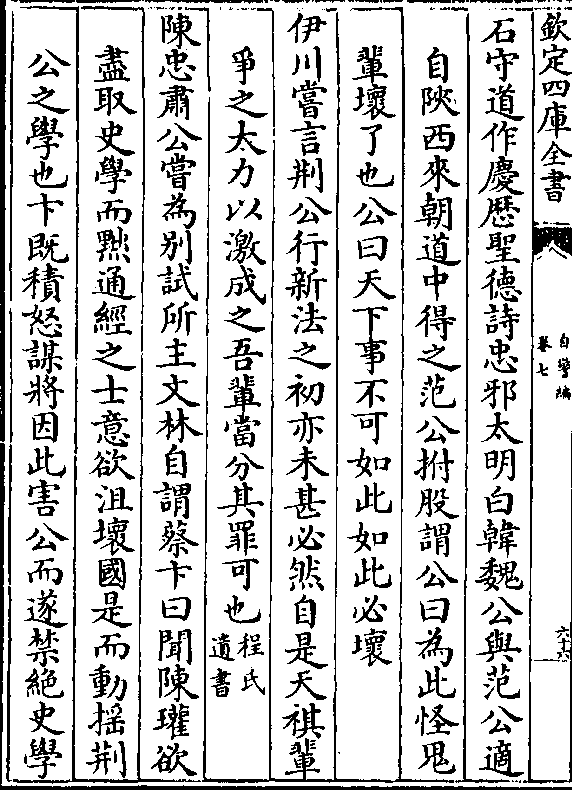 欽定四庫全書
自警編
卷七
六十六
石守道作慶厯聖德詩忠邪太明白韓魏公與范公適
自陝西來朝道中得之范公拊股謂公曰為此怪鬼
輩壞了也公曰天下事不可如此如此必壞
伊川嘗言荆公行新法之初亦未甚必然自是天祺輩
爭之太力以激成之吾輩當分其罪可也程氏
遺書
陳忠肅公嘗為别試所主文林自謂蔡卞曰聞陳瓘欲
盡取史學而黜通經之士意欲沮壞國是而動揺荆
公之學也卞既積怒謀將因此害公而遂禁絶史學